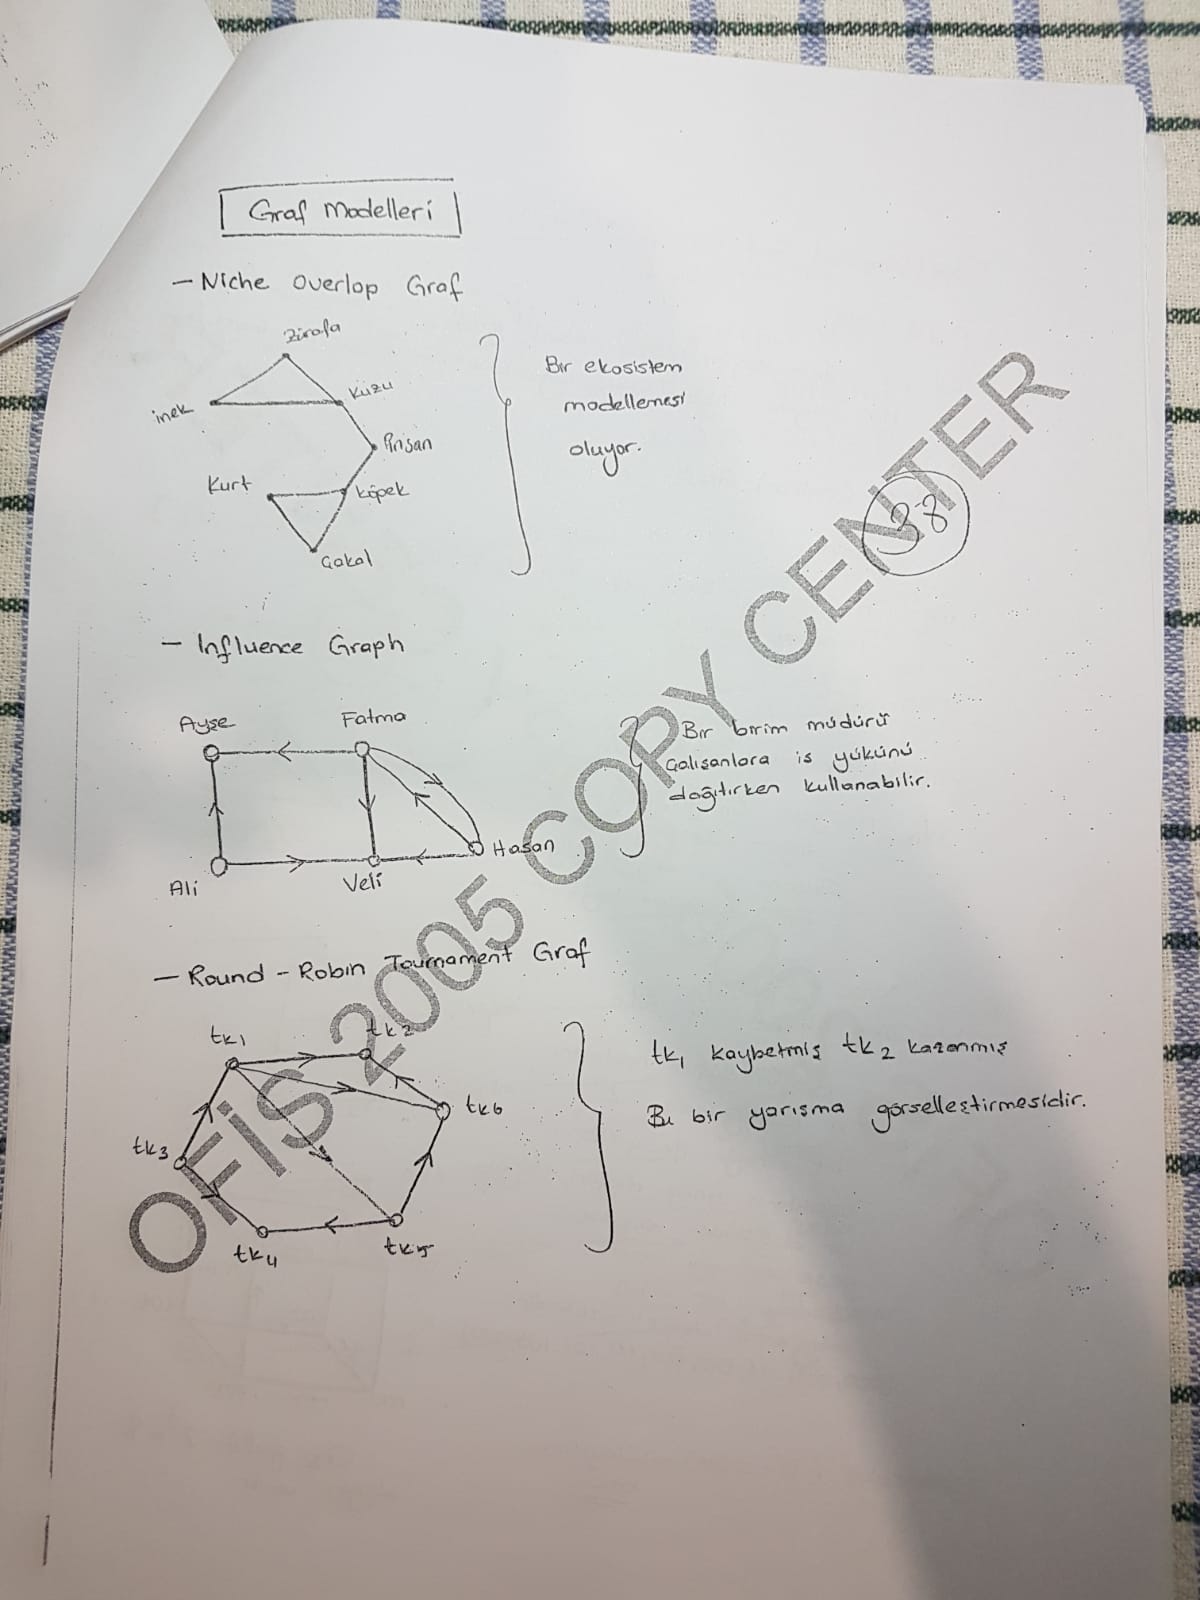 Graf Modelleri
- Niche Overlap Graf
Zürafa
inek
Kuzu
İnsan
Kurt
Köpek
Çakal
Bir ekosistem
modellemesi
oluyor.
38
- Influence Graph
Ayşe
Fatma
Hasan
Ali
Veli
Bir birim müdürü
çalışanlara iş yükünü
dağıtırken kullanabilir.
- Round - Robin Tournament Graf
tk1
tk2
tk6
tk3
tk4
tk5
tk1 kaybetmiş tk2 kazanmış
Bu bir yarışma görselleştirmesidir.
OFİS 2005 COPY CENTER